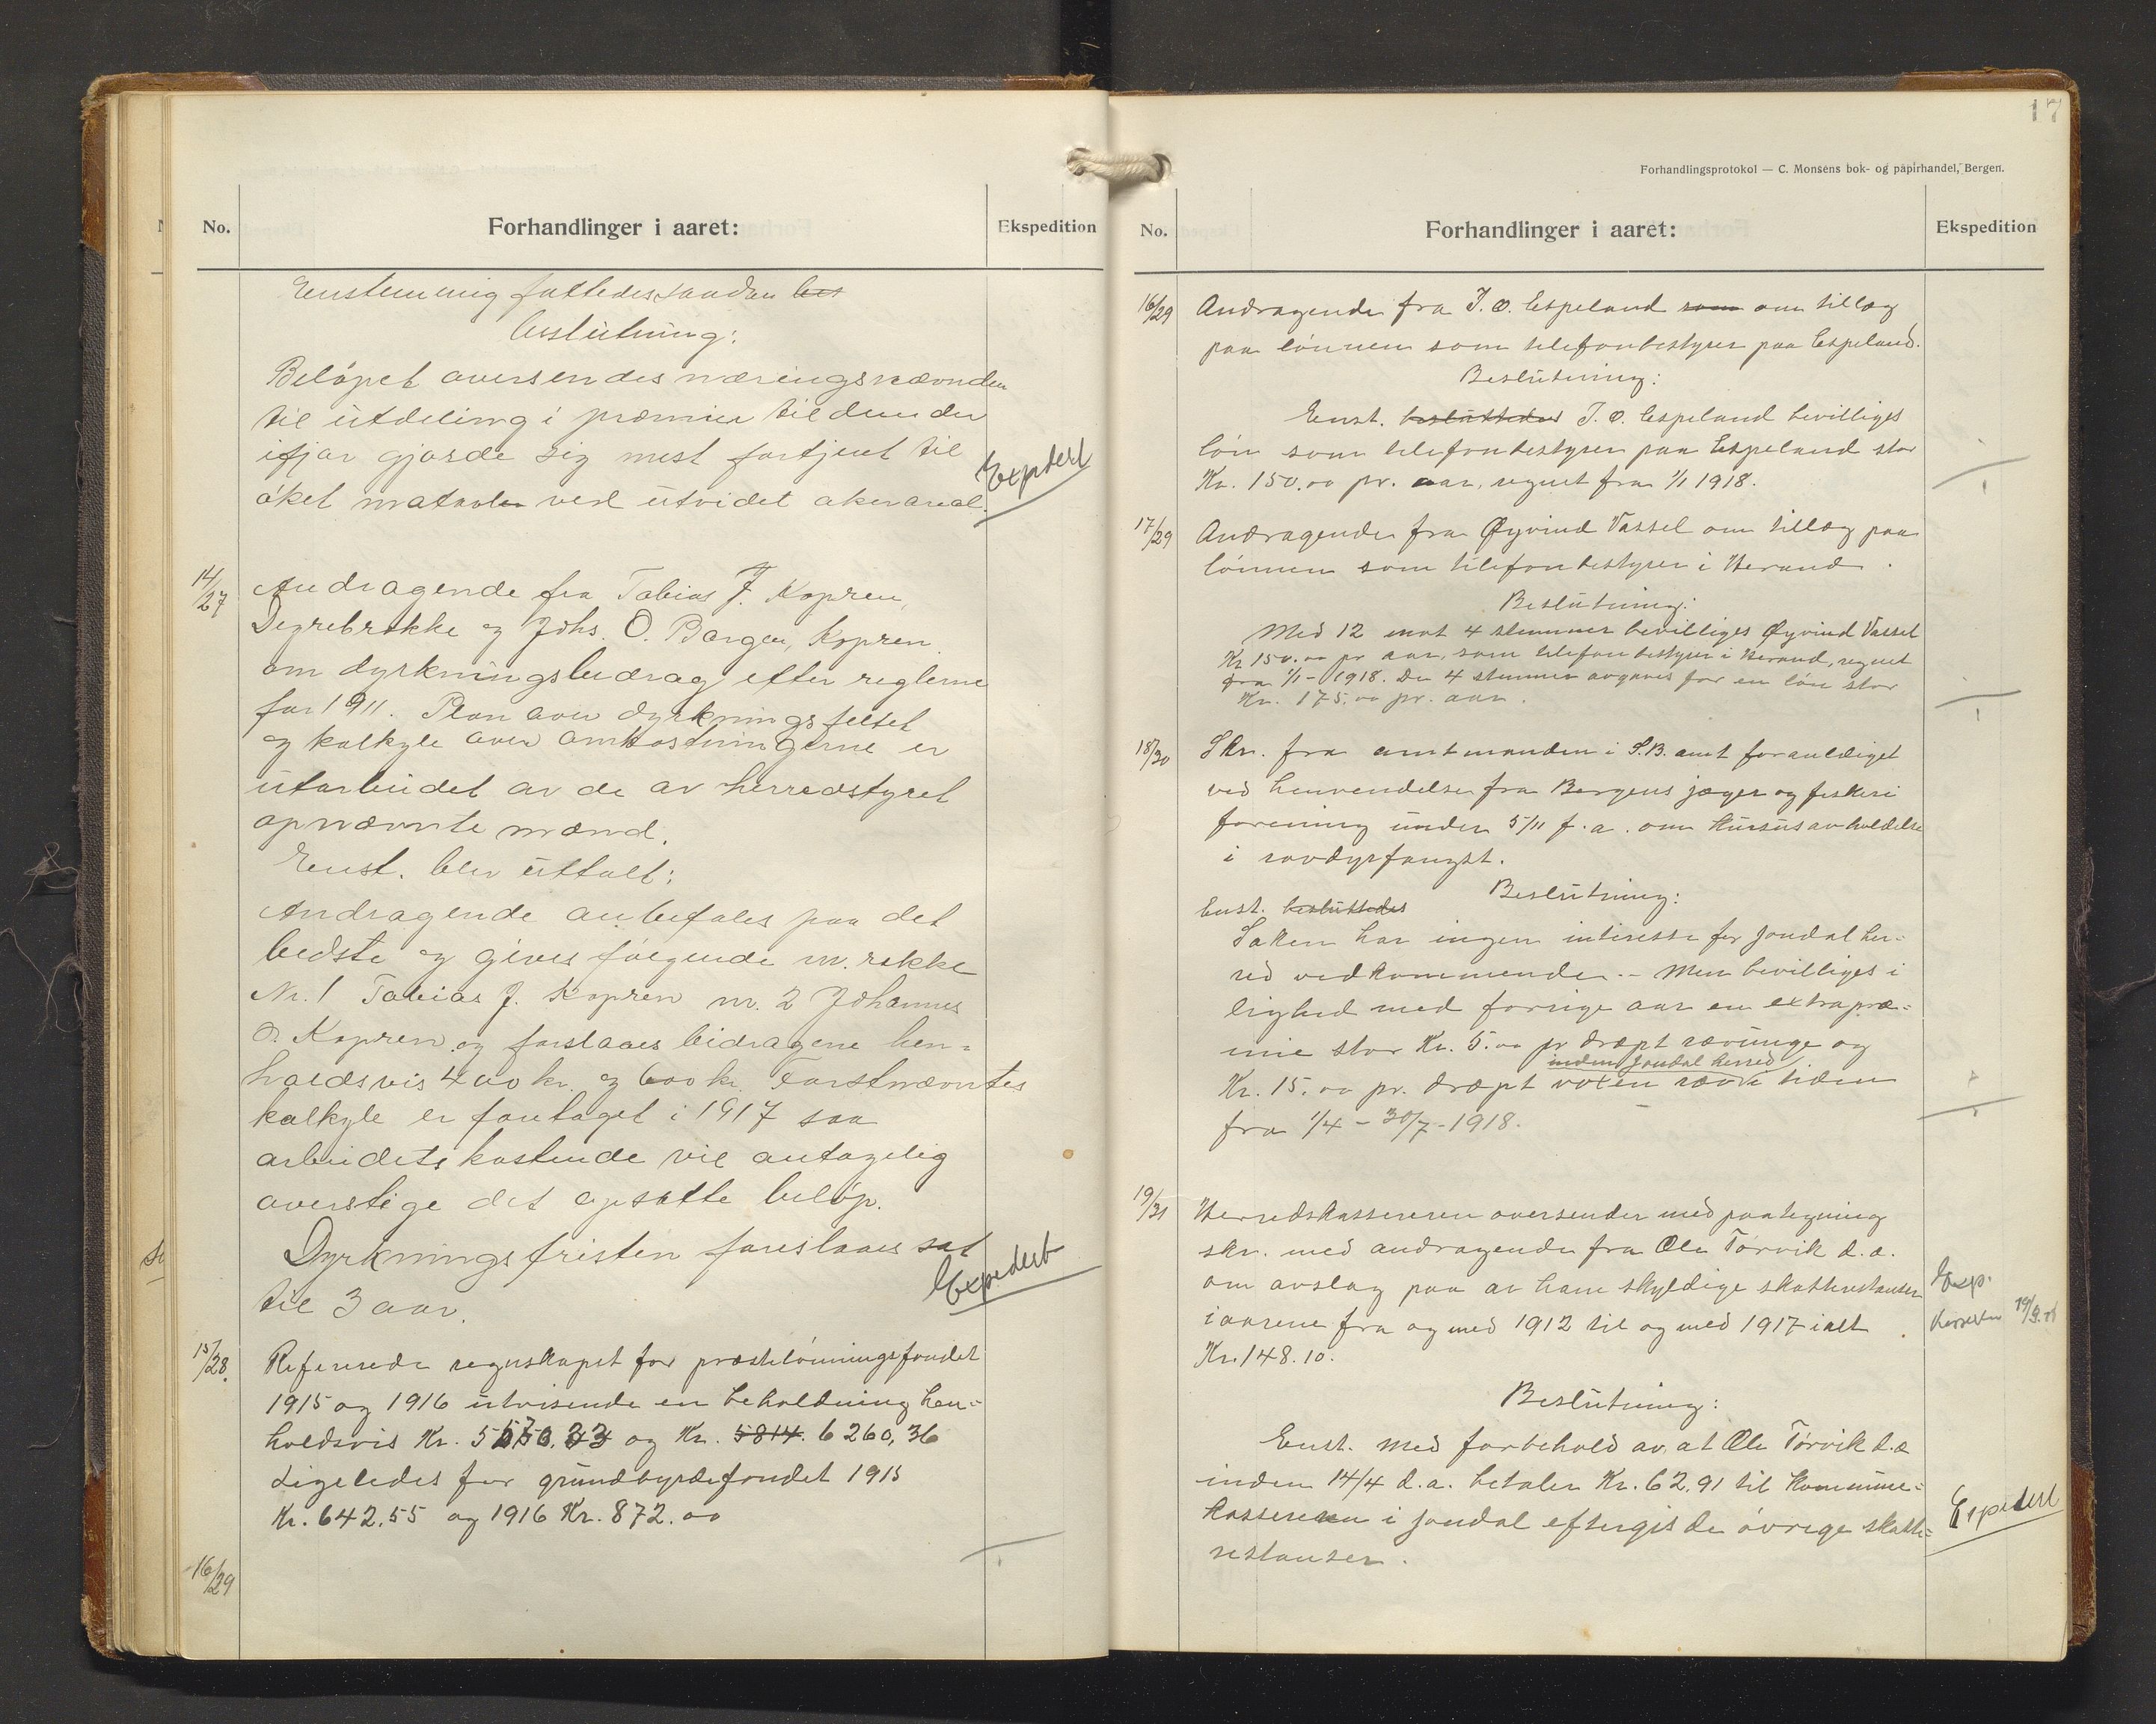 No.
Forhandlinger i aaret:
Ekspedition
Enstemmig fattedes saadan bes
beslutning:
Beløpet oversendes næringsnævnden
til utdeling i præmier til dem der
ifjor gjorde sig mest fortjent til
øket matavl ved utvidet akerareal.
Expedert
14/27
Andragende fra Tobias J. Kopren,
Degrebrekke og Johs. O. Bargen, Kopren
om dyrkningsbidrag efter reglerne
for 1911. Plan over dyrkningsfeltet
og kalkyle over omkostningerne er
utarbeidet av de av herredstyret
opnævnte mænd.
Enst. blev uttalt:
Andragende anbefales paa det
bedste og gives følgende nr. rekke
Nr. 1 Tobias J. Kopren nr. 2 Johannes
O. Kopren og forslaaes bidragene hen=
holdsvis 400 kr. og 600 kr. Førstnævntes
kalkyle er foretaget i 1917 saa
arbeidets kostende vil antagelig
overstige det opsatte beløp.
Dyrkningsfristen foreslaaes sat
til 3 aar.
Expedert
15/28.
Refererede regnskapet for prestelønningsfondet
1915 og 1916 utvisende en beholdning hen=
holdsvis Kr. og Kr. 5814. 6260,36
Ligeledes for grundbyrdefondet 1915
Kr. 642.55 og 1916 Kr. 872.00
16/29
17
Forhandlingsprotokol — C. Monsens bok- og papirhandel, Bergen.
No.
Forhandlinger i aaret:
Ekspedition
16/29
Andragende fra J. O. Espeland som om tillæg
paa lønnen som telefonbestyrer paa Espeland.
Beslutning:
Enst. besluttedes J. O. Espeland bevilliges
løn som telefonbestyrer paa Espeland stor
Kr. 150.00 pr. aar, regnet fra 1/1 1918.
17/29
Andragende fra Øyvind Vassel om tillæg paa
lønnen som telefonbestyrer i Herand.
Beslutning:
Med 12 mot 4 stemmer bevilliges Øyvind Vassel
Kr 150.00 pr aar, som telefonbestyrer i Herand, regnet
fra 1/1-1918. De 4 stemmer avgaves for en løn stor
Kr. 175.00 pr. aar.
18/30
Skr. fra amtmanden i S.B. amt foranlediget
ved henvendelse fra Bergens jæger og fiskeri
forening under 5/11 f.a. om kursus avholdelse
i rovdyrfangst.
Beslutning:
Enst. besluttedes
Saken har ingen interesse for Jondal her=
red vedkommende. - Men bevilliges i
lighed med forrige aar en extrapræ=
mie stor Kr. 5.00 pr dræpt rævunge og
inden Jondal herred
Kr. 15.00 pr. dræpt voxen ræv i tiden
fra 1/4 - 30/7-1918.
19/31
Herredskassereren oversender med paategning
skr. med andragende fra Ole Tørvik d.æ.
om avslag paa av ham skyldige skatterestanser
i aarene fra og med 1912 til og med 1917 ialt
Kr. 148.10.
Exp.
Beslutning:
Enst. Med forbehold av, at Ole Tørvik d.æ
inden 14/4 d.a. betaler Kr. 62.91 til kommune=
kassereren i Jondal eftergis de øvrige skatte=
restanser.
Expedert